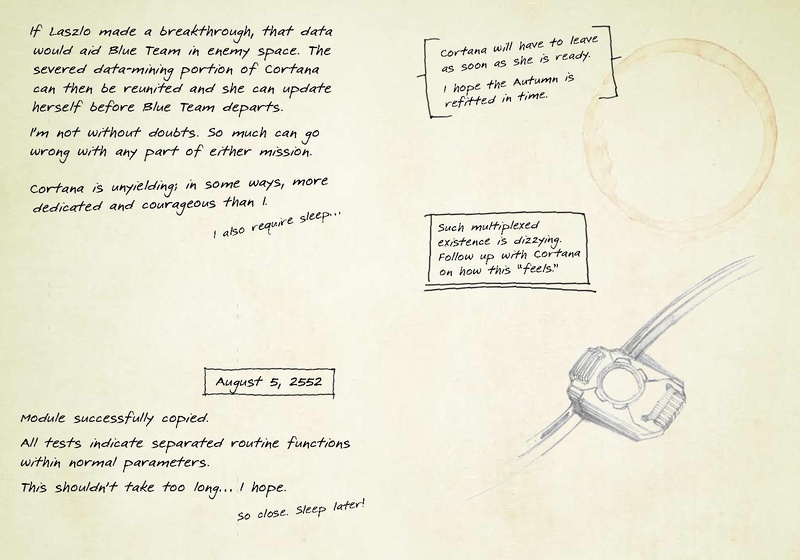 If Laszlo made a breakthrough, that data
would aid Blue Team in enemy space. The
severed data-mining portion of Cortana
can then be reunited and she can update
herself before Blue Team departs.
I'm not without doubts. So much can go
wrong with any part of either mission.
Cortana is unyielding; in some ways, more
dedicated and courageous than I.
I also require sleep...
August 5, 2552
Module successfully copied.
All tests indicate separated routine functions
within normal parameters.
This shouldn't take too long... I hope.
So close. Sleep later!
Cortana will have to leave
as soon as she is ready.
I hope the Autumn is
refitted in time.
Such multiplexed
existence is dizzying.
Follow up with Cortana
on how this "feels."